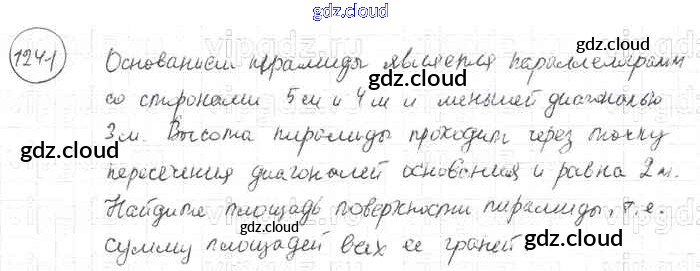 gdz.cloud
1241 Основанием пирамиды является параллелограмм
gdz.cloud
со сторонами 5см и 4м и меньшей диагональю
3м. Высота пирамиды проходит через точку
gdz.cloud
пересечения диагоналей основания и равна 2м.
Найдите площадь поверхности пирамиды, т.е.
сумму площадей всех ее граней
gdz.cloud